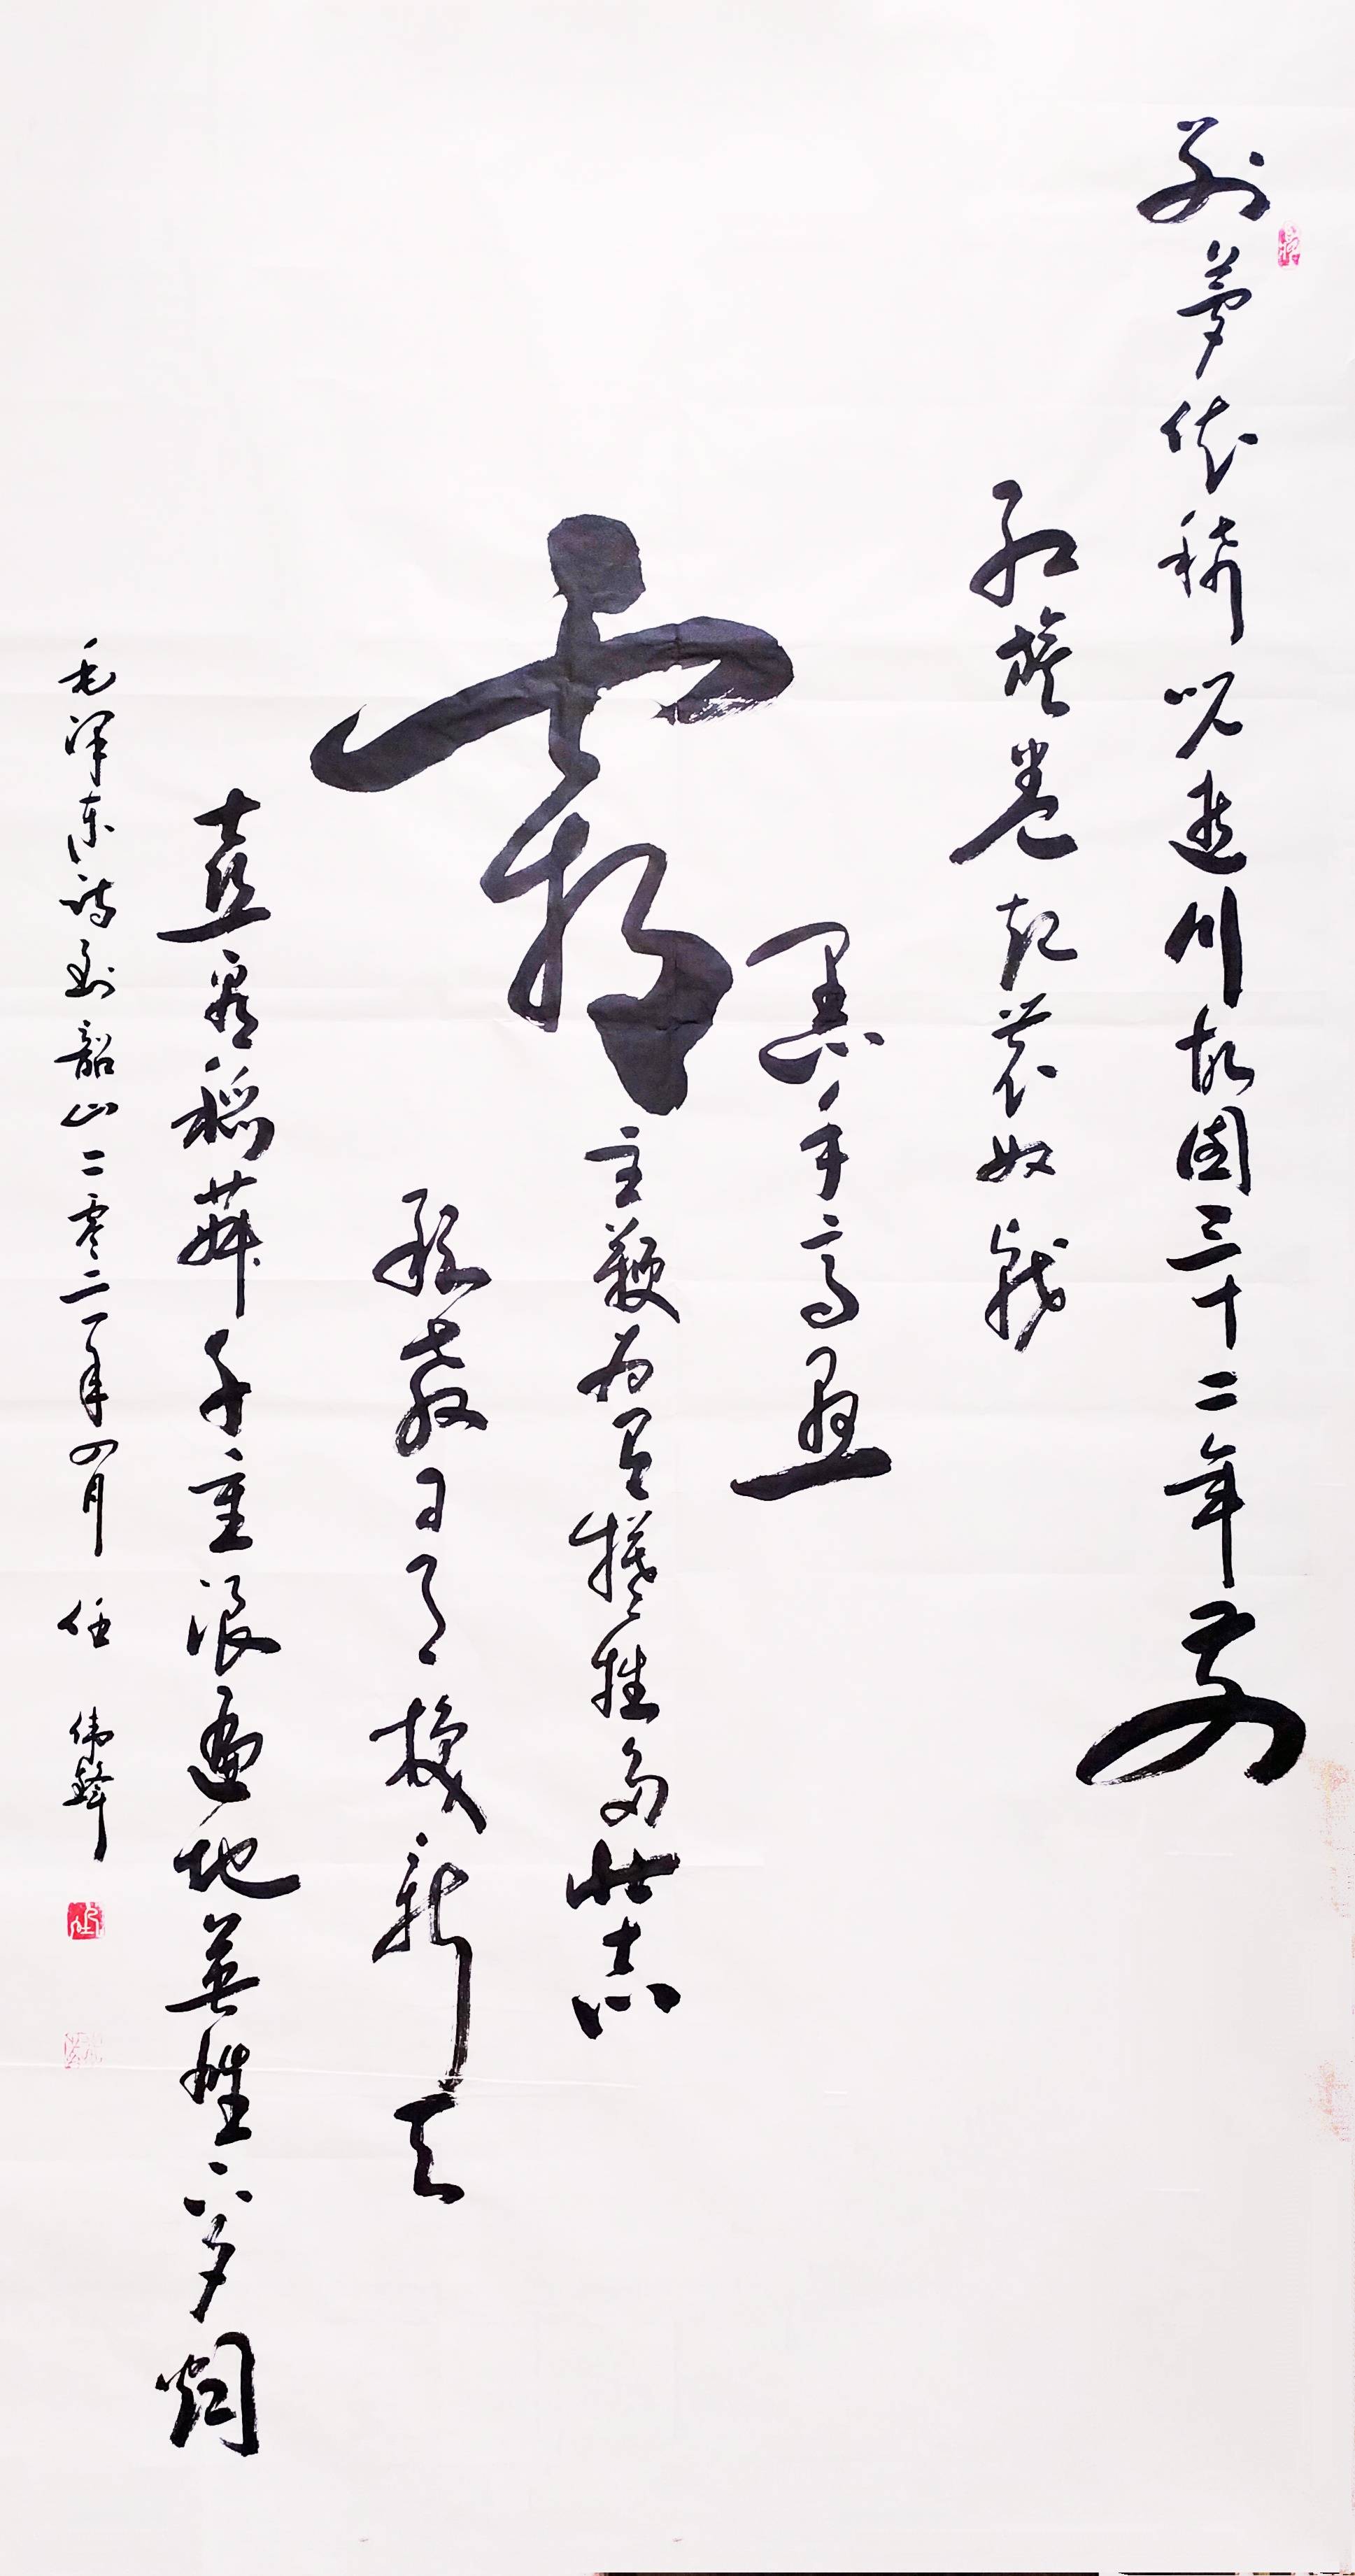 别夢依稀咒逝川故園三十二年前
红旗卷起農奴戟
黑手高悬
霸主鞭为有犧牲多壮志
敢教日月换新天
喜看稻菽千重浪遍地英雄下夕烟
毛泽东诗到韶山二零二一年四月 任 伟鋒